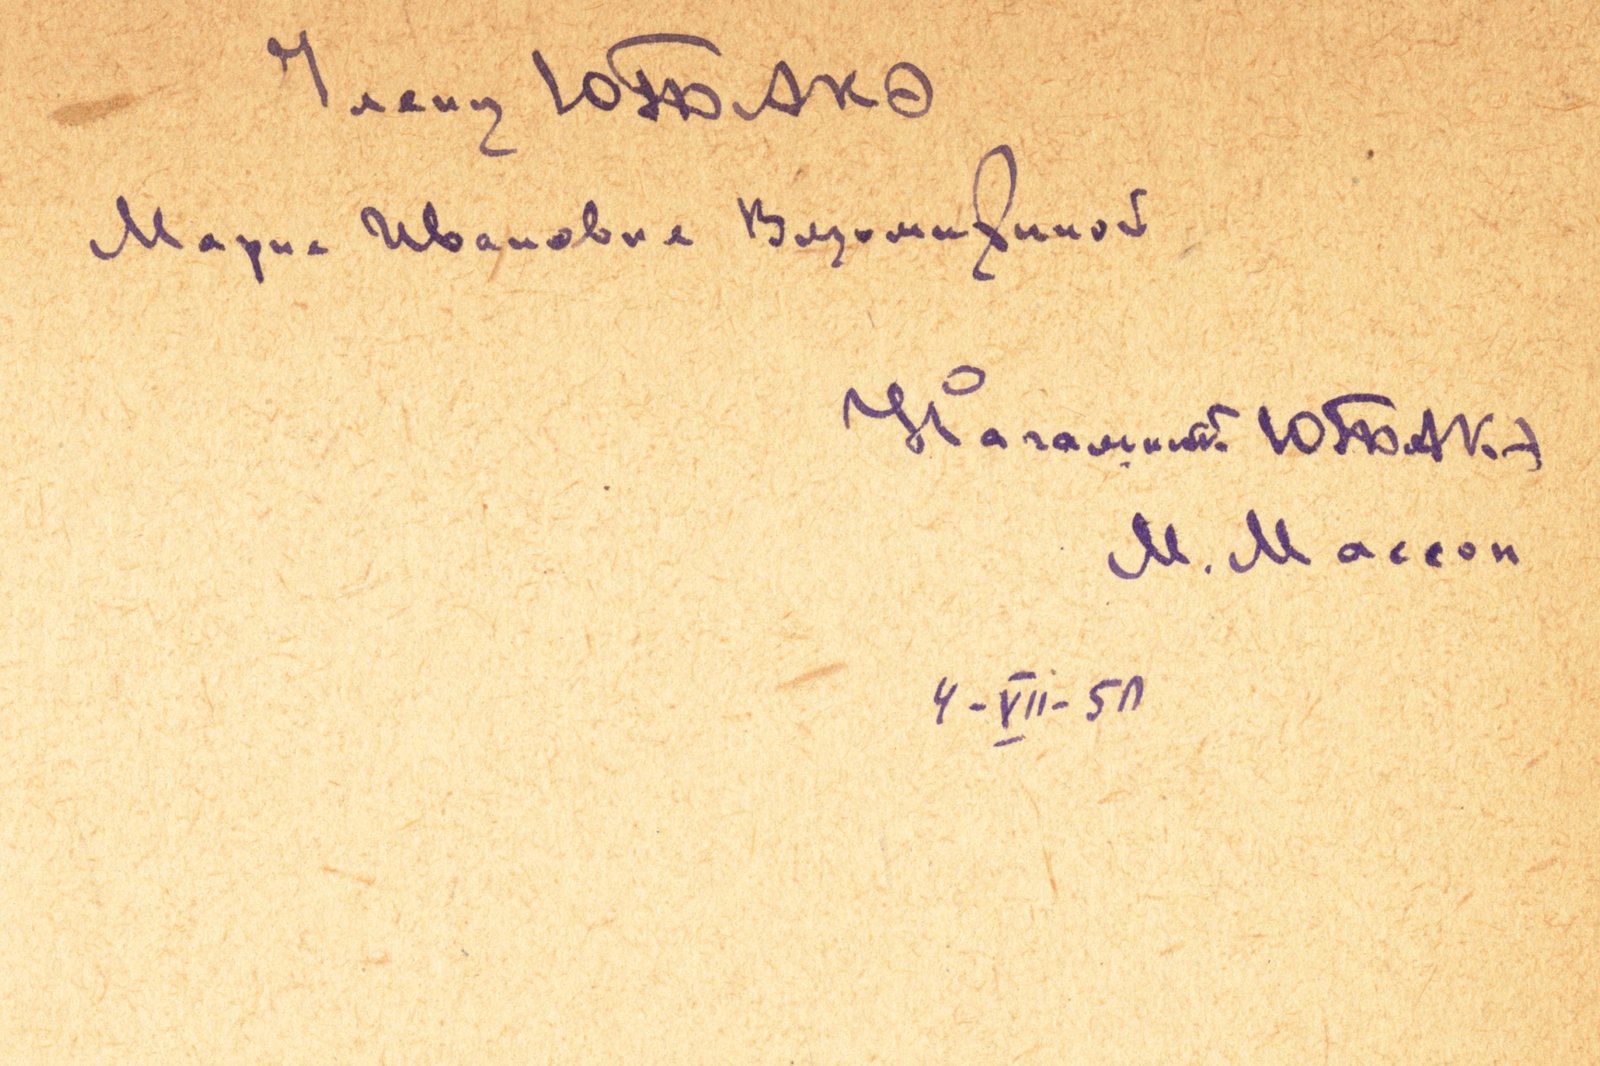 Члену ЮТАКЭ
Марие Ивановне Вязьмитиной
Начальник ЮТАКЭ
М. Массон
4-VII-51